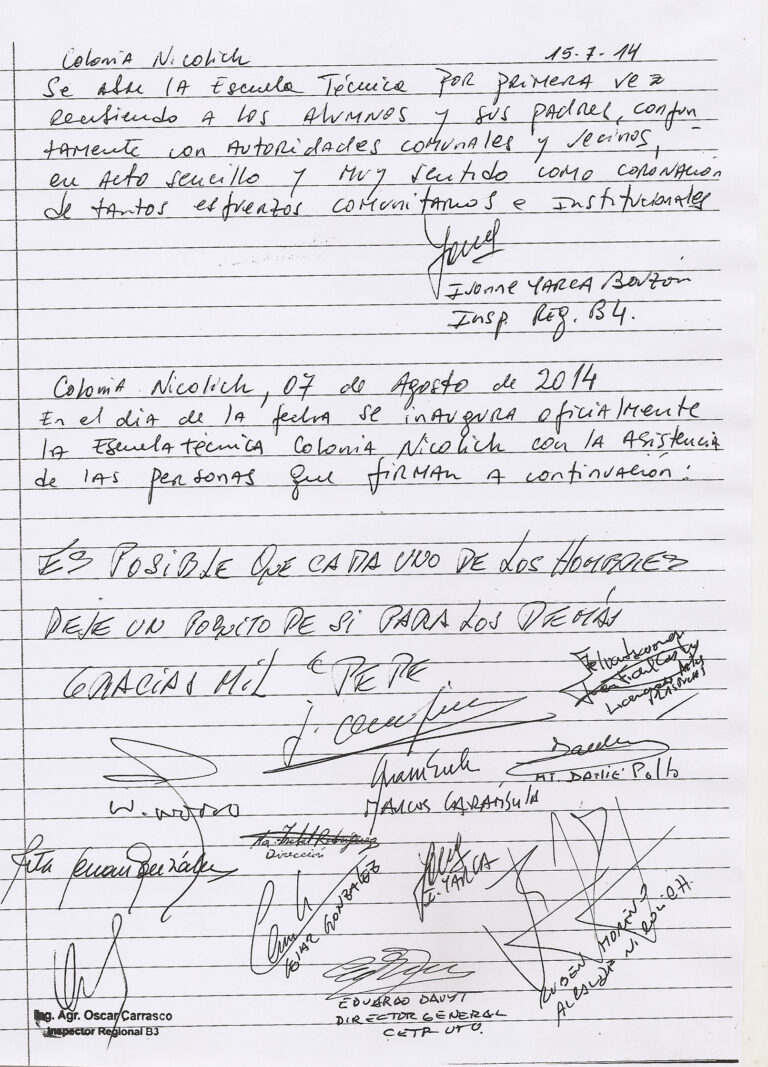 Colonia Nicolich 15-7-14
Se abre la Escuela Técnica por primera vez
recibiendo a los alumnos y sus padres, conjun
tamente con autoridades comunales y vecinos,
en acto sencillo y muy sentido como coronación
de tantos esfuerzos comunitarios e Institucionales
Ivonne Yarca Bonzón
Insp. Reg. B4.
Colonia Nicolich, 07 de Agosto de 2014
En el dia de la fecha se inaugura oficialmente
la Escuela técnica Colonia Nicolich con la Asistencia
de las personas que firman a continuación:
ES POSIBLE QUE CADA UNO DE LOS HOMBRES
DEJE UN POQUITO DE SI PARA LOS DEMÁS
GRACIAS MIL "PEPE
Licenciado Artes
Plásticas
Marcos Carámbula
Dirección
I. YARCA
GONZALEZ
RUBÉN MORENO
ALCALDE NICOLICH.
Ing. Agr. Oscar Carrasco
Inspector Regional B3
EDUARDO DAVYT
DIRECTOR GENERAL
CETP UTU.